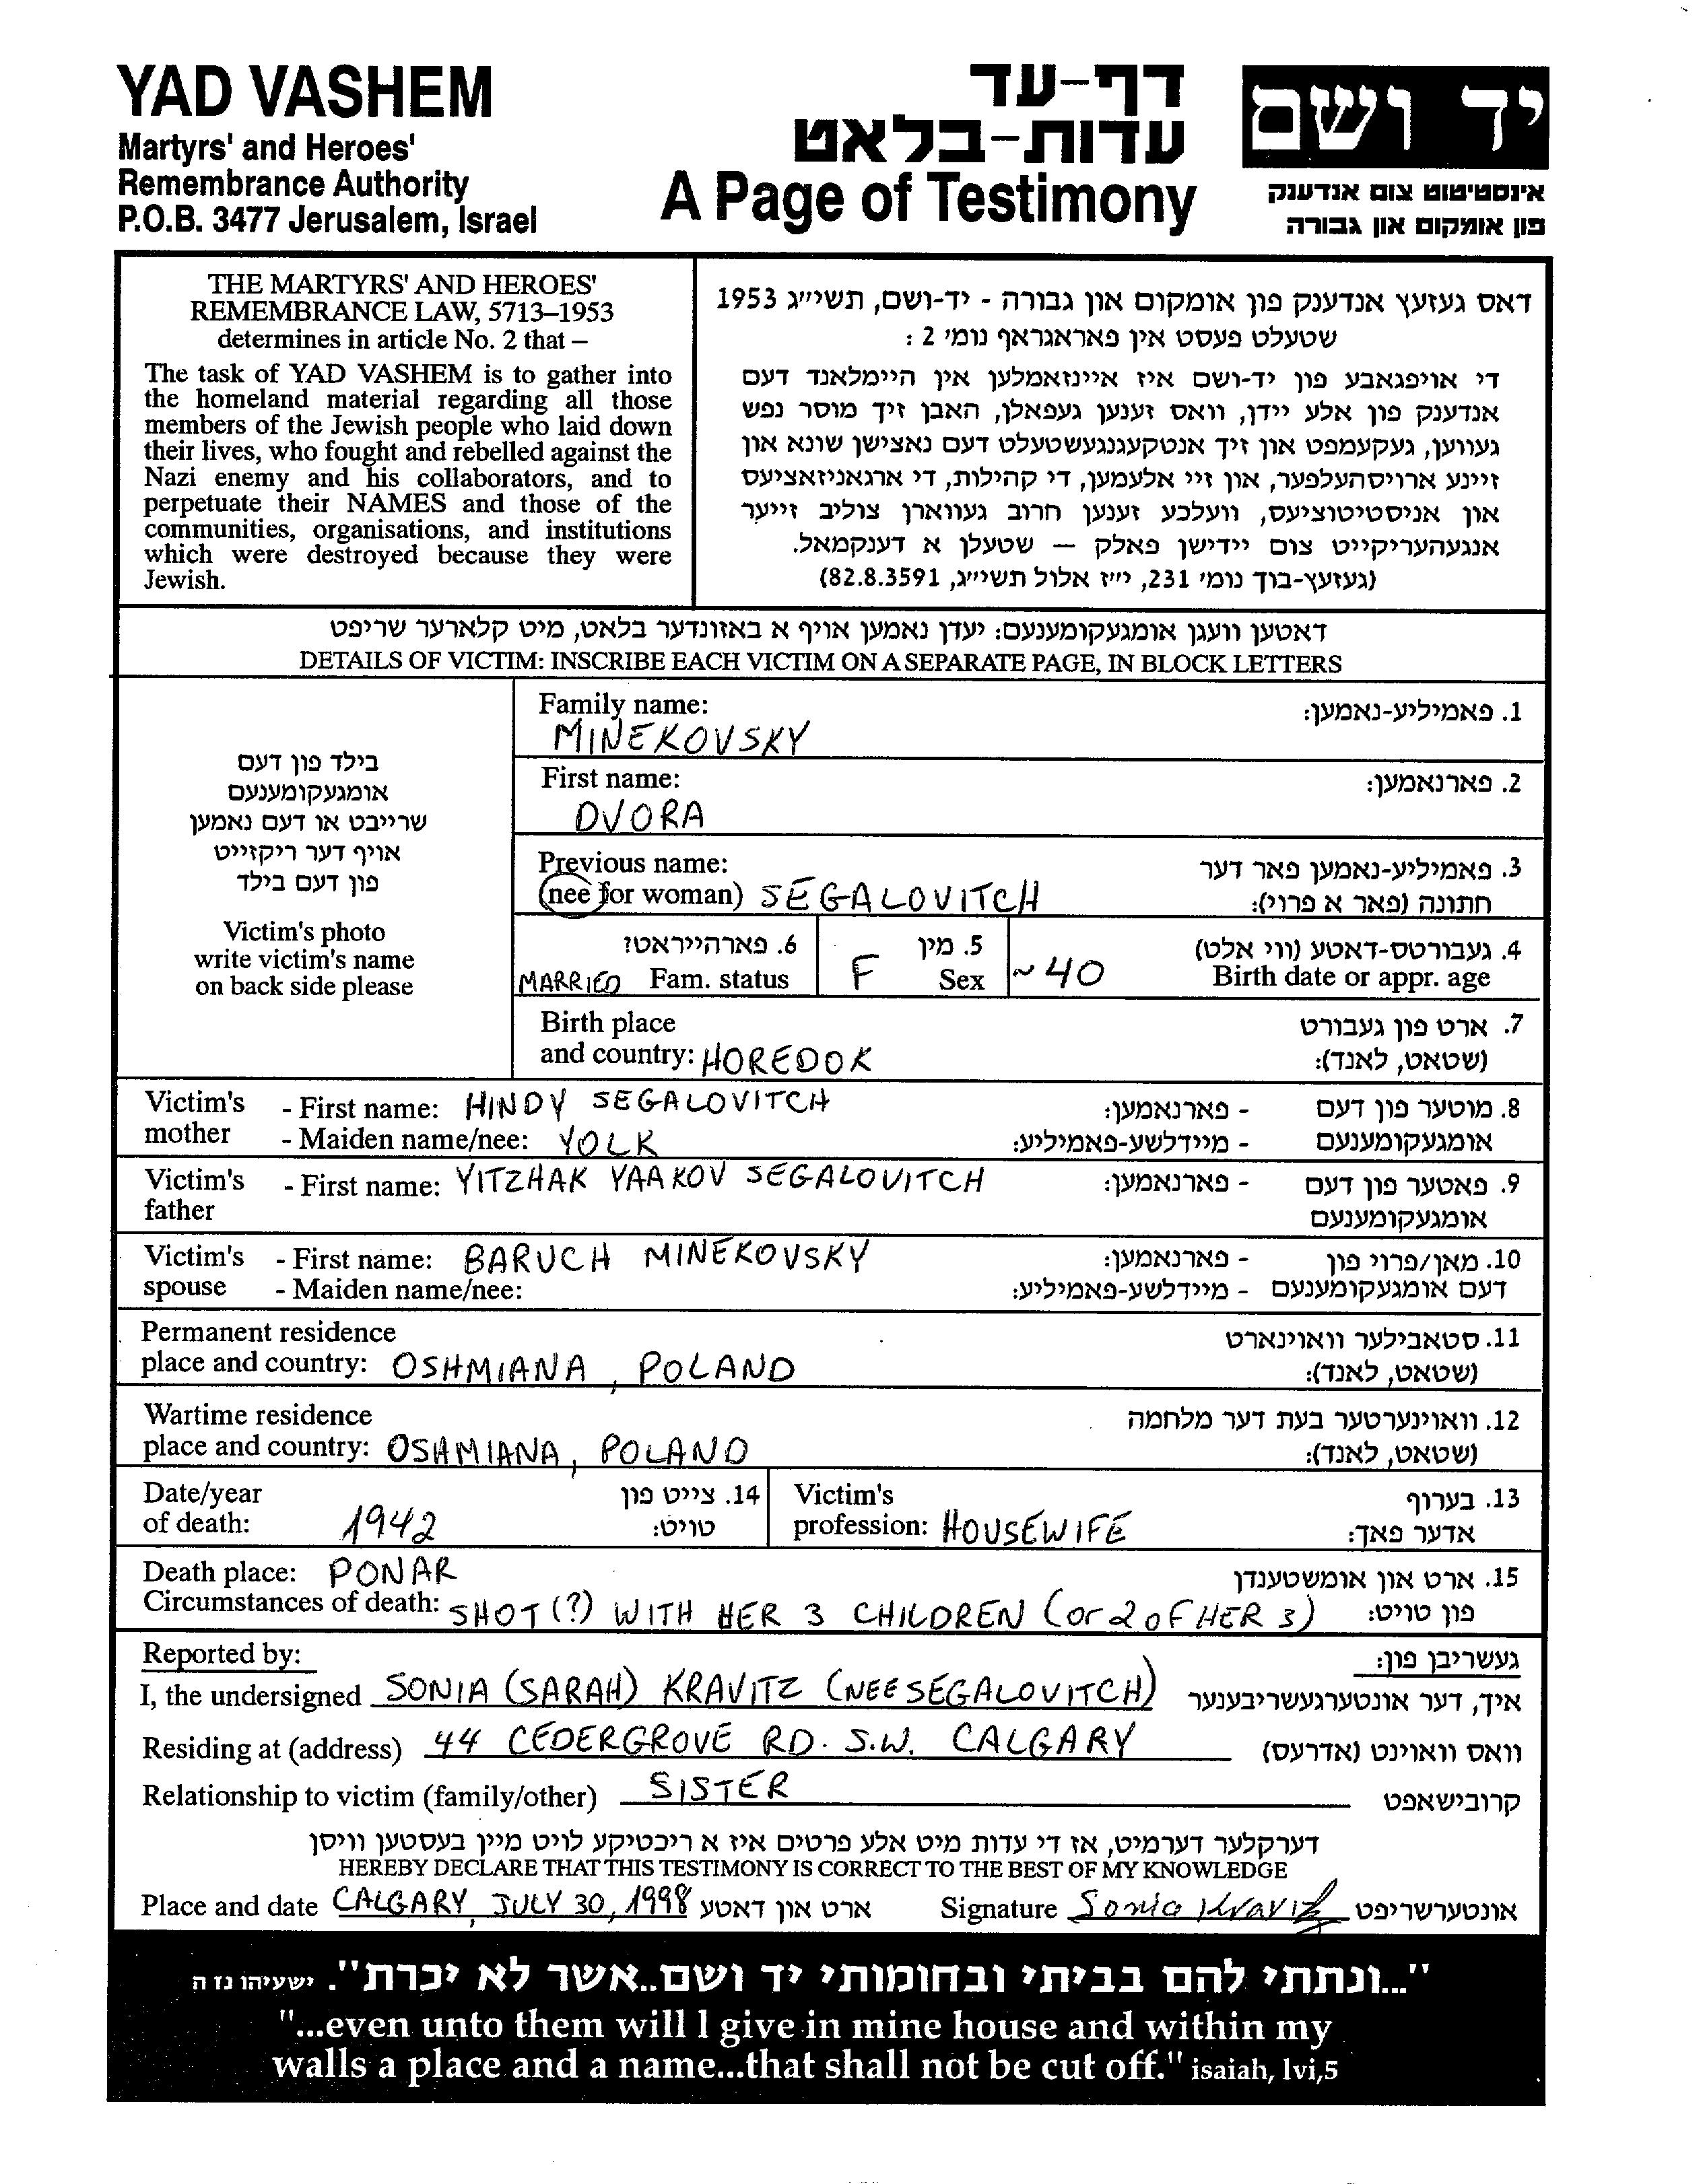 YAD VASHEM
Martyrs' and Heroes'
Remembrance Authority
P.O.B. 3477 Jerusalem, Israel
דף-עד
עדות-בלאט
A Page of Testimony
יד ושם
אינסטיטוט צום אנדענק
פון אומקום און גבורה
THE MARTYRS' AND HEROES'
REMEMBRANCE LAW, 5713–1953
determines in article No. 2 that –
The task of YAD VASHEM is to gather into
the homeland material regarding all those
members of the Jewish people who laid down
their lives, who fought and rebelled against the
Nazi enemy and his collaborators, and to
perpetuate their NAMES and those of the
communities, organisations, and institutions
which were destroyed because they were
Jewish.
דאס געזעץ אנדענק פון אומקום און גבורה - יד-ושם, תשי״ג 1953
שטעלט פעסט אין פאראגראף נומ׳ 2 :
די אויפגאבע פון יד-ושם איז איינזאמלען אין היימלאנד דעם
אנדענק פון אלע יידן, וואס זענען געפאלן, האבן זיך מוסר נפש
געווען, געקעמפט און זיך אנטקעגנגעשטעלט דעם נאצישן שונא און
זיינע ארויסהעלפער, און זיי אלעמען, די קהילות, די ארגאניזאציעס
און אניסטיטוציעס, וועלכע זענען חרוב געווארן צוליב זייער
אנגעהעריקייט צום יידישן פאלק — שטעלן א דענקמאל.
(געזעץ-בוך נומ׳ 231, י״ז אלול תשי״ג, 82.8.3591)
דאטען וועגן אומגעקומענעם: יעדן נאמען אויף א באזונדער בלאט, מיט קלארער שריפט
DETAILS OF VICTIM: INSCRIBE EACH VICTIM ON A SEPARATE PAGE, IN BLOCK LETTERS
בילד פון דעם
אומגעקומענעם
שרייבט או דעם נאמען
אויף דער ריקזייט
פון דעם בילד
Victim's photo
write victim's name
on back side please
Family name: 1. פאמיליע-נאמען:
MINEKOVSKY
First name: 2. פארנאמען:
DVORA
Previous name: 3. פאמיליע-נאמען פאר דער
(nee for woman) SEGALOVITCH חתונה (פאר א פרוי):
6. פארהייראטט? 5. מין 4. געבורטס-דאטע (ווי אלט)
MARRIED Fam. status F Sex ~40 Birth date or appr. age
Birth place 7. ארט פון געבורט
and country: HOREDOK (שטאט, לאנד):
Victim's - First name: HINDY SEGALOVITCH פארנאמען: - 8. מוטער פון דעם
mother - Maiden name/nee: YOLK מיידלשע-פאמיליע: - אומגעקומענעם
Victim's - First name: YITZHAK YAAKOV SEGALOVITCH פארנאמען: - 9. פאטער פון דעם
father אומגעקומענעם
Victim's - First name: BARUCH MINEKOVSKY פארנאמען: - 10. מאן/פרוי פון
spouse - Maiden name/nee: מיידלשע-פאמיליע: - דעם אומגעקומענעם
Permanent residence 11. סטאבילער וואוינארט
place and country: OSHMIANA, POLAND (שטאט, לאנד):
Wartime residence 12. וואוינערטער בעת דער מלחמה
place and country: OSHMIANA, POLAND (שטאט, לאנד):
Date/year 14. צייט פון Victim's 13. בערוף
of death: 1942 טויט: profession: HOUSEWIFE אדער פאך:
Death place: PONAR 15. ארט און אומשטענדן
Circumstances of death: SHOT (?) WITH HER 3 CHILDREN (or 2 of HER 3) פון טויט:
Reported by: געשריבן פון:
I, the undersigned SONIA (SARAH) KRAVITZ (NEE SEGALOVITCH) איך, דער אונטערגעשריבענער
Residing at (address) 44 CEDERGROVE RD. S.W. CALGARY וואס וואוינט (אדרעס)
Relationship to victim (family/other) SISTER קרובישאפט
דערקלער דערמיט, אז די עדות מיט אלע פרטים איז א ריכטיקע לויט מיין בעסטען וויסן
HEREBY DECLARE THAT THIS TESTIMONY IS CORRECT TO THE BEST OF MY KNOWLEDGE
Place and date CALGARY, JULY 30, 1998 ארט און דאטע Signature Sonia Kravitz אונטערשריפט
"...ונתתי להם בביתי ובחומותי יד ושם..אשר לא יכרת". ישעיהו נז ה
"...even unto them will I give in mine house and within my
walls a place and a name...that shall not be cut off." isaiah, lvi,5